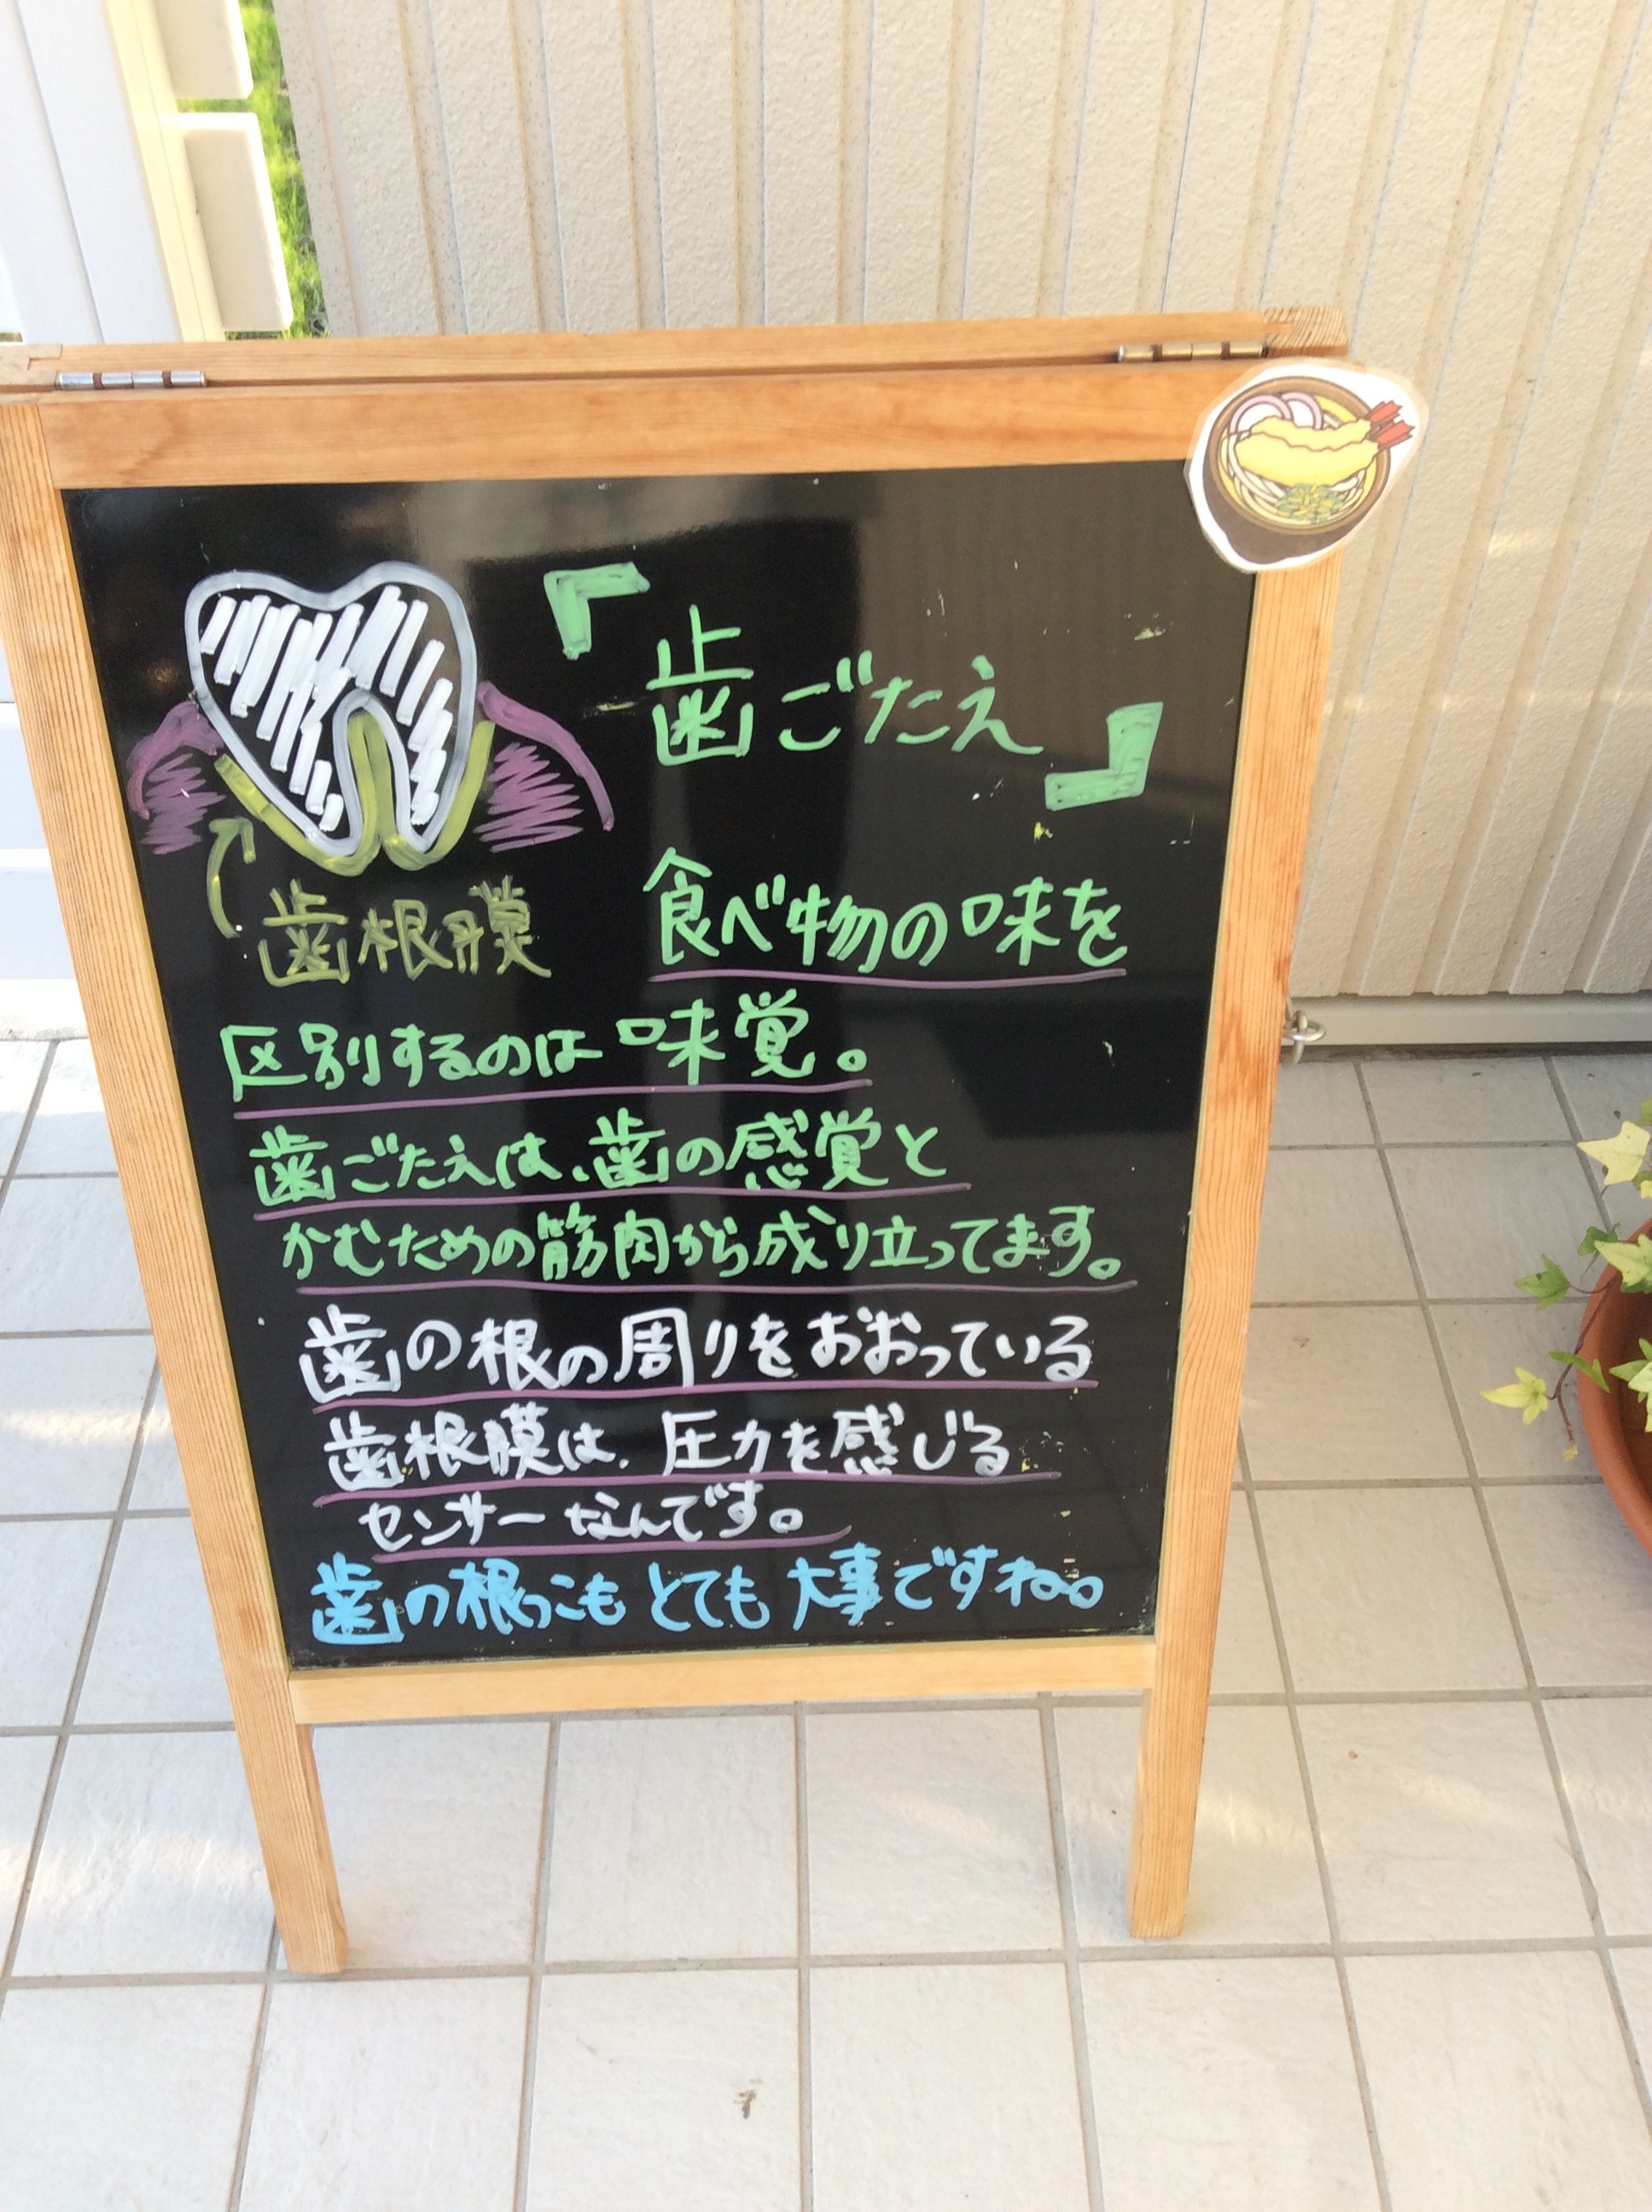 『歯ごたえ』
歯根膜
食べ物の味を
区別するのは味覚。
歯ごたえは、歯の感覚と
かむための筋肉から成り立ってます。
歯の根の周りをおおっている
歯根膜は、圧力を感じる
センサーなんです。
歯の根っこもとても大事ですね。